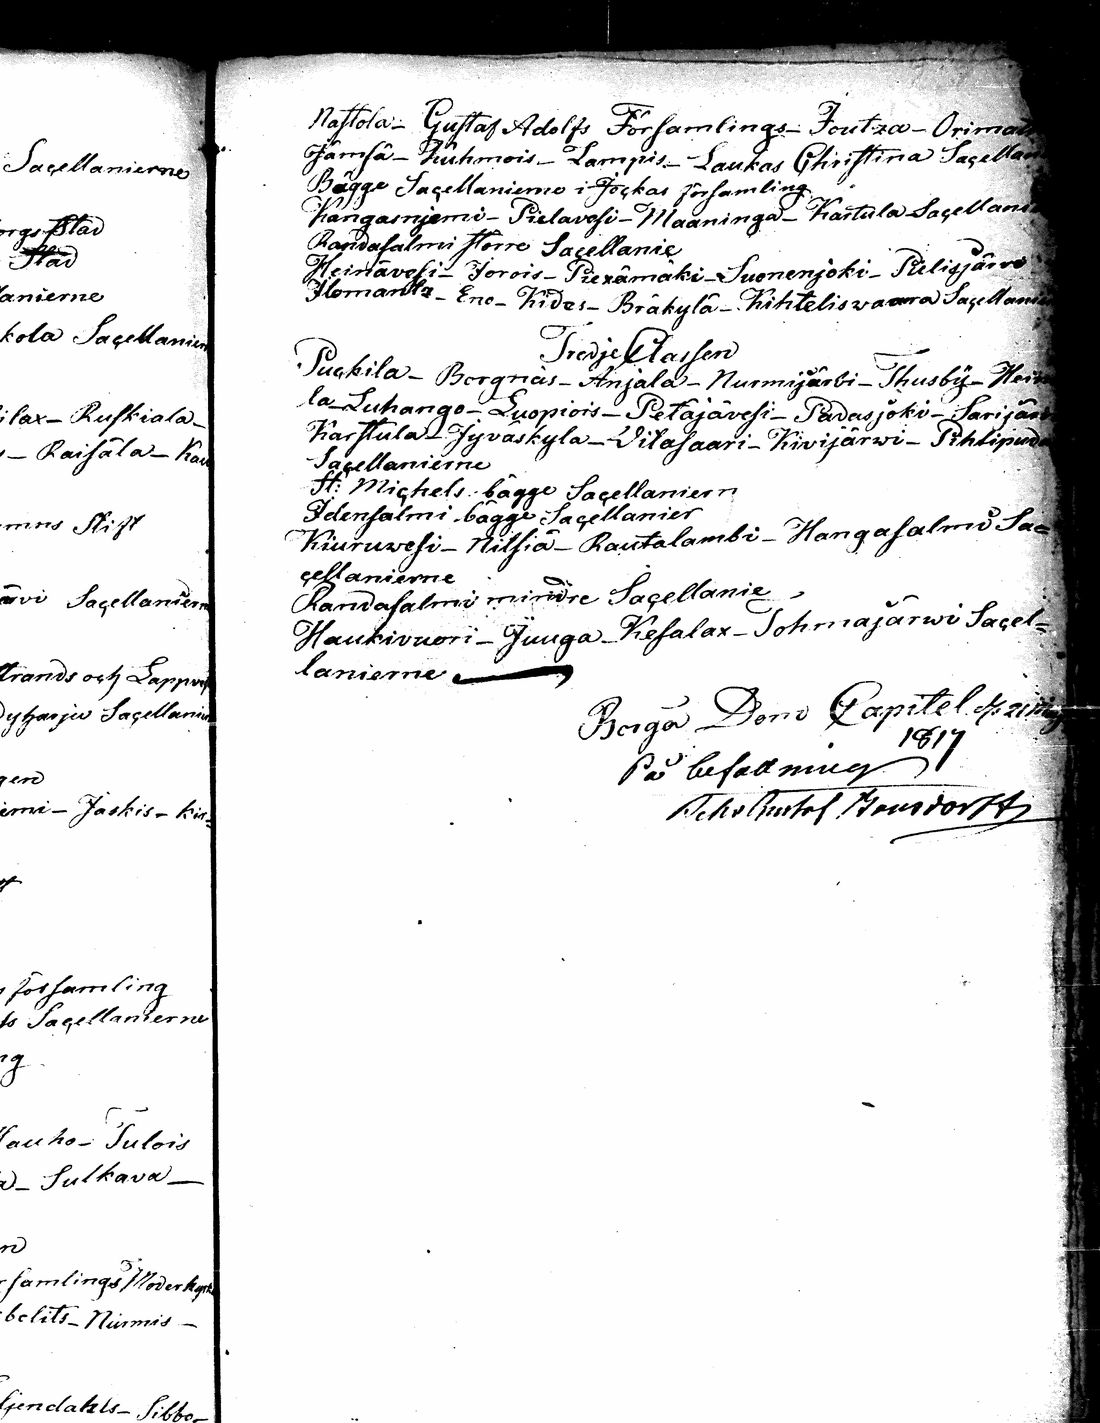 Sacellanierne
orgs Stad
Stad
lanierne
kola Sacellaniern
ilax – Ruskiala –
– Raisäla – Kau
mns Stift
ärvi Sacellaniern
strands och Lappve
Sacellanier
gen
iemi – Jäskis – kir=
församling
ts Sacellanierne
ng
Hauho – Tulois
a – Sulkava –
n
rsamlings Moderkyrk
belits – Nurmis –
ljendahls – Sibbo –
Nastola – Gustaf Adolfs Församlings – Joutza – Orimat
Jämsä – Kuhmois – Lampis – Laukas Christina Sacellan
Bägge Sacellanierne i Jockas församling
Kangasnjemi – Pielavesi – Maaninga – Kartula Sacellani
Randasalmi större Sacellanie
Heinävesi – Jorois – Piexämäki – Suonenjoki – Pielisjärvi
Ilomants – Eno – Kides – Bräkylä – Kihteliswaara Sacellani
Tredje Classen
Puckila – Borgnäs – Anjala – Nurmijärvi – Thusby – Hein
la – Luhango – Luopiois – Petäjävesi – Padasjoki – Sarijärv
Karstula – Jyväskyla – Vitasaari – Kivijärwi – Pihtipuda
Sacellanierne
St: Michels bägge Sacellaniern
Idensalmi bägge Sacellanier
Kiuruwesi – Nilsiä – Rautalambi – Hangasalmi Sa=
cellanierne
Randasalmi mindre Sacellanie
Haukivuori – Juuga – Kesalax – Tohmajärwi Sacel=
lanierne
Borgå Dom Capitel d. 21 Maj
1817
På befallning
Gustaf